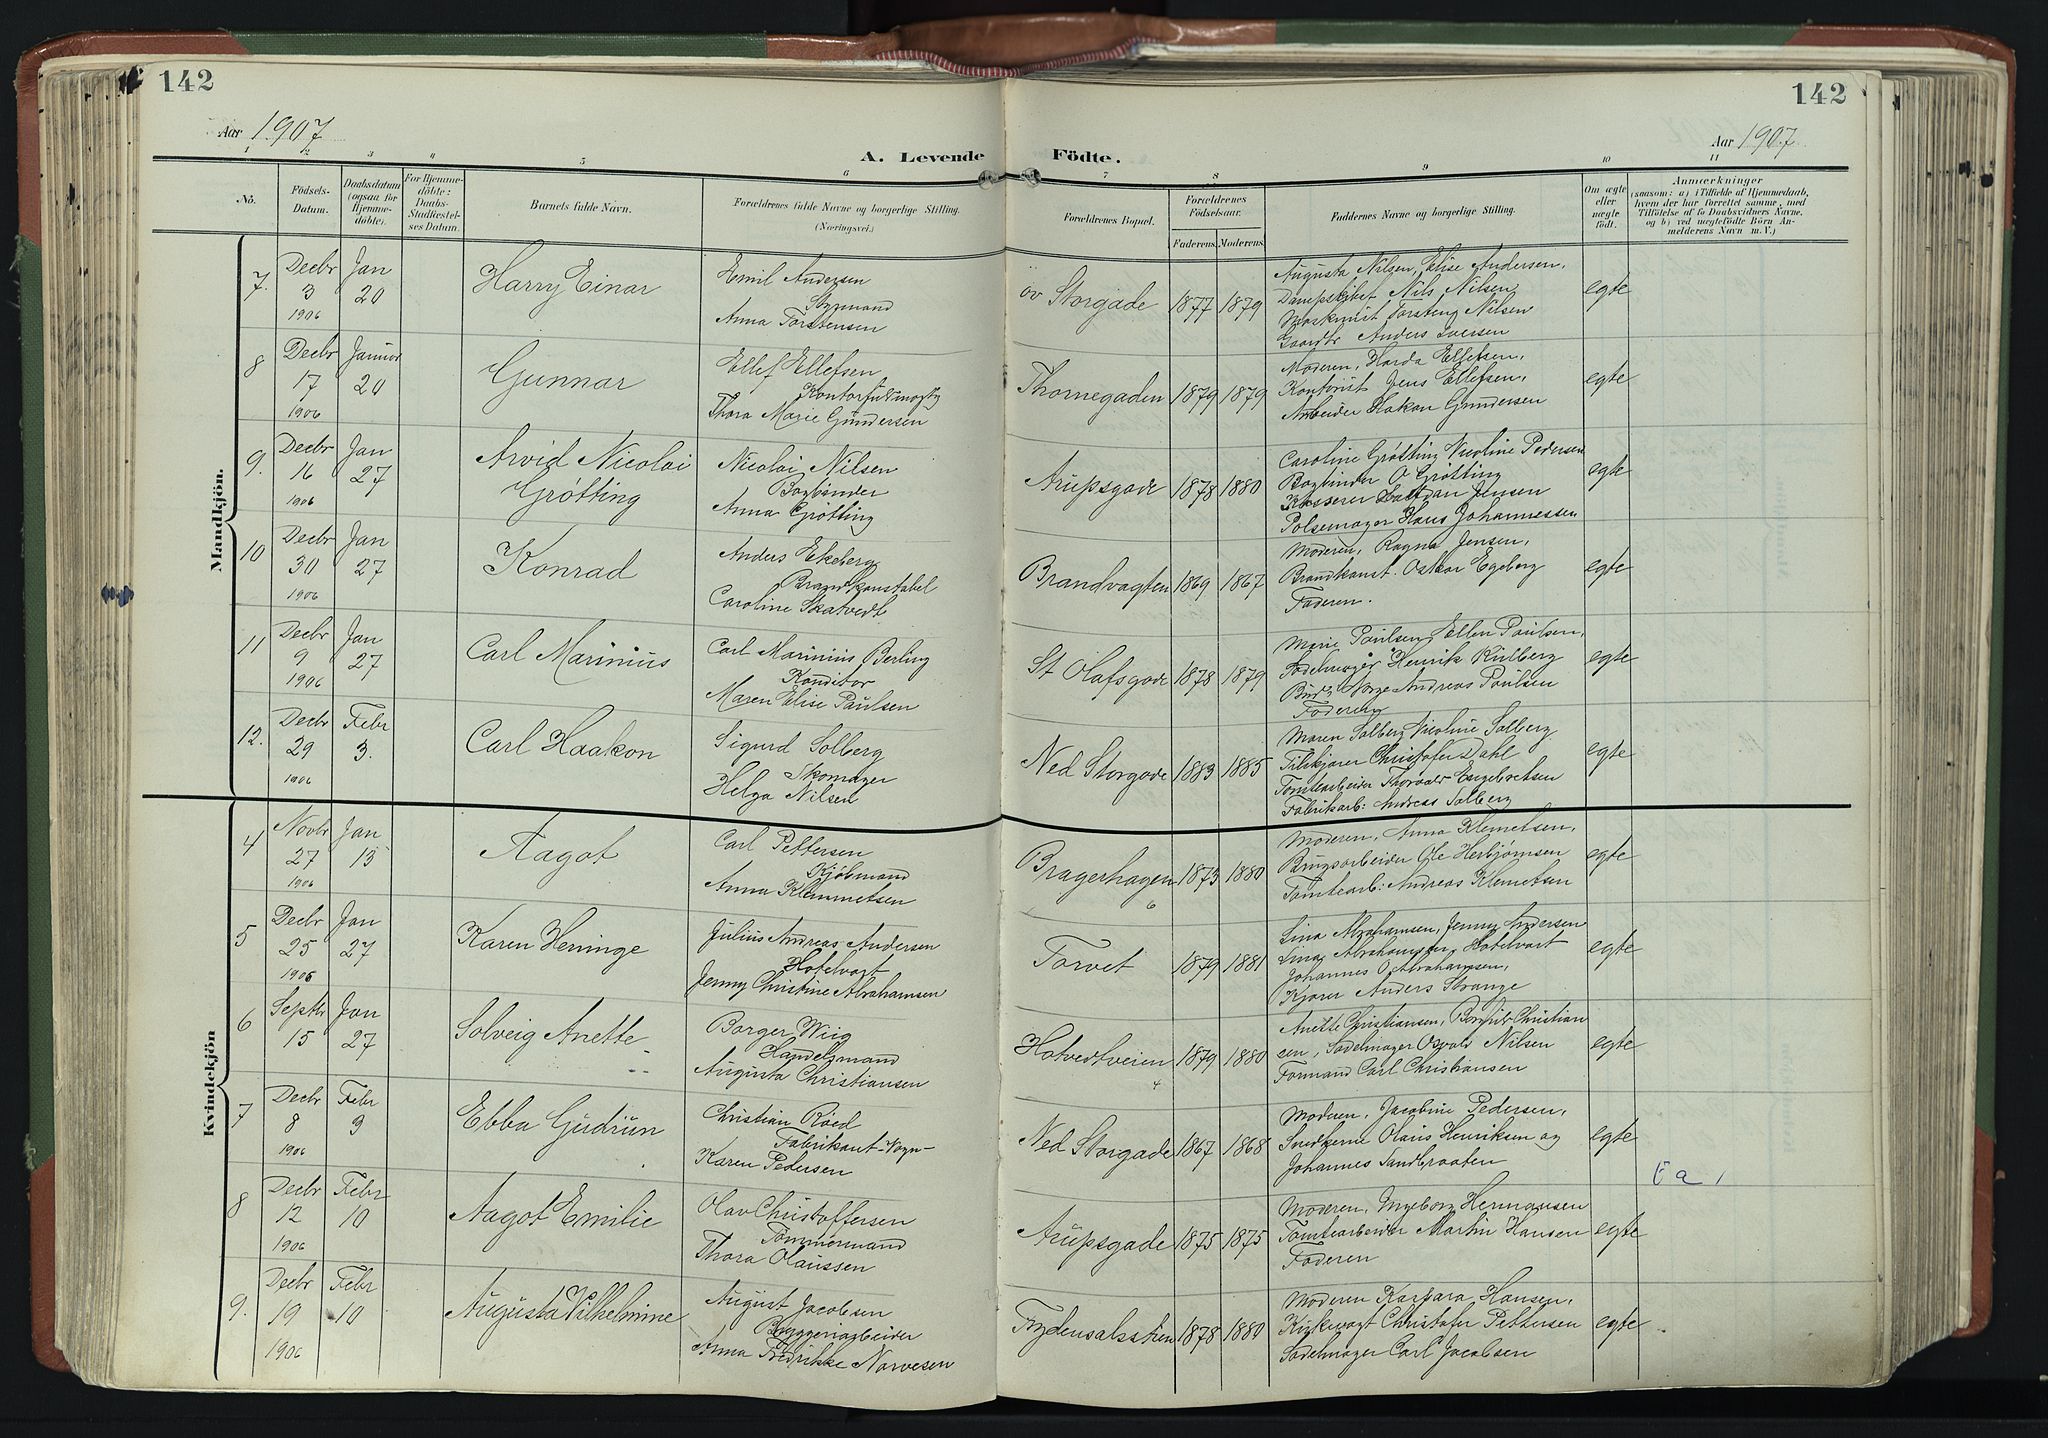 142
142
Aar 1907
Aar 1907
A. Levende Födte.
1 2 3 4 5 6 7 8 9 10 11
No.
Födsels-
Datum.
Daabsdatum
(ogsaa for
Hjemme-
döbte).
For Hjemme-
döbte:
Daabs-
Stadfæstel-
ses Datum.
Barnets fulde Navn.
Forældrenes fulde Navne og borgerlige Stilling.
(Næringsvei.)
Forældrenes Bopæl.
Forældrenes
Födselsaar.
Faderens. Moderens.
Faddernes Navne og borgerlige Stilling.
Om ægte
eller
uægte
födt.
Anmærkninger
(saasom: a) i Tilfælde af Hjemmedaab,
hvem der har forrettet samme, med
Tilföielse af to Daabsvidners Navne,
og b) ved uægtefödte Börn An-
melderens Navn m. V.)
Mandkjön.
7.
Decbr
3
1906
Jan
20
Harry Einar
Emil Andersen
Anna Torstensen
ov Storgade
1877 1879
Augusta Nilsen, Elise Andersen,
Nils Nilsen
Nilsen
Anders Iversen
egte
8
Decbr
17
1906
Januar
20
Gunnar
Ellef Ellefsen
Thora Marie Gundersen
Thornegaden
1879 1879
Moderen, Ellefsen,
Kontorist Jens Ellefsen,
Arbeider Hakon Gundersen
egte
9.
Decbr
16
1906
Jan
27
Arvid Nicolai
Grøtting
Nicolai Nilsen
Bogbinder
Anna Grøtting
Arupsgade
1878 1880
Caroline Grøtting Nicoline Pedersen
Bogbinder O Grøtting
Kasserer Halfdan Jensen
Pølsemager Hans Johannessen
egte
10
Decbr
30
1906
Jan
27
Konrad
Anders Ekeberg
Brandkonstabel
Caroline Skatvedt
Brandvagten
1869 1867
Moderen, Ragna Jensen,
Brandkonst. Oskar Egeberg
Faderen.
egte
11
Decbr
9
1906
Jan
27
Carl Marinius
Carl Marinius Berling
Konditor
Maren Elise Paulsen
St Olafsgade
1878 1879
Marie Paulsen Ellen Paulsen,
Sadelmager Henrik Kulberg
Andreas Paulsen
Faderen
egte
12.
Decbr
29
1906
Febr
3.
Carl Haakon
Sigurd Solberg
Skomager
Helga Nilsen
Ned Storgade
1883 1885
Maren Solberg Nicoline Solberg
Christofer Dahl
Tomtearbeider Thorvald Engebretsen
Fabrikarb: Andreas Solberg
egte
Kvindekjön
4
Novbr
27
1906
Jan
13
Aagot
Carl Pettersen
Kjøbmand
Anna Klemmetsen
Bragerhagen
6
1873 1880
Moderen, Anna Klemetsen,
Brugsarbeider Ole Herbjørnsen
Tomtearb: Andreas Klemetsen
egte
5
Decbr
25
1906
Jan
27
Karen Henninge
Julius Andreas Andersen
Hotelvært
Jenny Christine Abrahamsen
Torvet
1879 1881
Lina Abrahamsen, Jenny Andersen
Lina Abrahamsen, Hotelvært
Johannes O Abrahamsen,
Kjører Anders Strange
egte
6
Septbr
15
Jan
27
Solveig Anette
Borger Wiig
Handelsmand
Augusta Christiansen
Hotvedtveien
4
1879 1880
Anette Christiansen, Borghild Christian
sen, Sadelmager Osvald Nilsen
Formand Carl Christiansen
egte
7
Decbr
8
1906
Febr
9
Ebba Gudrun
Christian Røed
Fabrikant-Vogn-
Karen Pedersen
Ned Storgade
1867 1868
Moderen, Jacobine Pedersen,
Snedkerne Olaus Henriksen og
Johannes Sandbraaten
egte
Ea
8
Decbr
12
1906
Febr
10
Aagot Emilie
Olav Christoffersen
Tømmermand
Thora Olaussen
Arupsgade
1875 1875
Moderen, Ingeborg Hermansen
Tomtearbeider Martin Hansen
Faderen
egte
9.
Decbr
19
1906
Febr
10
Augusta Vilhelmine
August Jacobsen
Bryggeriarbeider
Anna Fredrikke Norvesen
Frydensalsstien
1878 1880
Moderen Barbara Hansen,
Kirkevagt Christofer Pettersen
Sadelmager Carl Jacobsen
egte